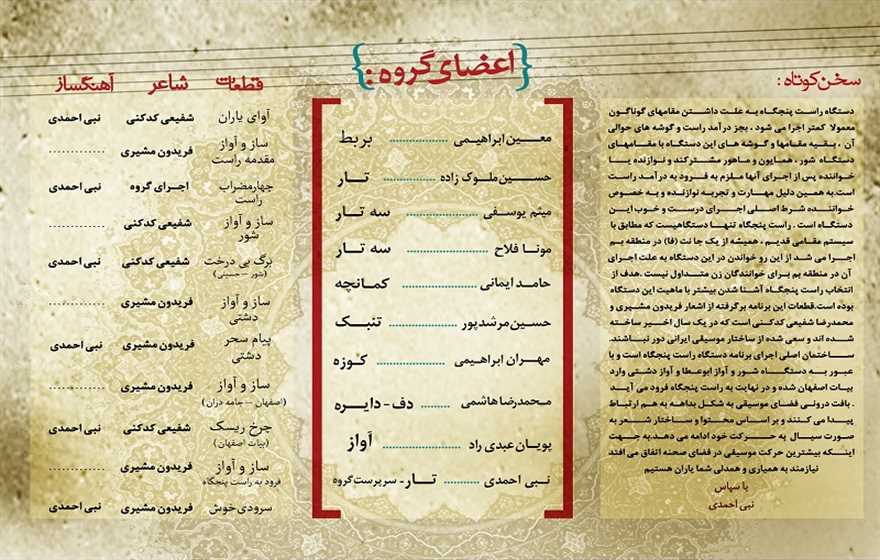 سخن کوتاه :
دستگاه راست پنجگاه به علت داشتن مقامهای گوناگون
معمولا کمتر اجرا می شود ، بجز درآمد راست و گوشه های حوالی
آن ، بقیه مقامها و گوشه های این دستگاه با مقامهای
دستگاه شور ، همایون و ماهور مشترکند و نوازنده یا
خواننده پس از اجرای آنها ملزم به فرود به درآمد راست
است.به همین دلیل مهارت و تجربه نوازنده و به خصوص
خواننده شرط اصلی اجرای درست و خوب این
دستگاه است . راست پنجگاه تنها دستگاهیست که مطابق با
سیستم مقامی قدیم ، همیشه از یک جا نت (فا) در منطقه بم
اجرا می شد از این رو خواندن در این دستگاه به علت اجرای
آن در منطقه بم برای خوانندگان زن متداول نیست .هدف از
انتخاب راست پنجگاه آشنا شدن بیشتر با ماهیت این دستگاه
بوده است.قطعات این برنامه برگرفته از اشعار فریدون مشیری و
محمدرضا شفیعی کدکنی است که در یک سال اخیر ساخته
شده اند و سعی شده از ساختار موسیقی ایرانی دور نباشند.
ساختمان اصلی اجرای برنامه دستگاه راست پنجگاه است و با
عبور به دستگاه شور و آواز ابوعطا و آواز دشتی وارد
بیات اصفهان شده و در نهایت به راست پنجگاه فرود می آید
. بافت درونی فضای موسیقی به شکل بداهه به هم ارتباط
پیدا می کنند و بر اساس محتوا و ساختار شعر به
صورت سیال به حرکت خود ادامه می دهد.به جهت
اینکه بیشترین حرکت موسیقی در فضای صحنه اتفاق می افتد
نیازمند به همیاری و همدلی شما یاران هستیم
با سپاس
نبی احمدی
{اعضای گروه :}
معین ابراهیمی .................. بربط
حسین ملوک زاده ................ تار
میثم یوسفی ...................... سه تار
مونا فلاح ......................... سه تار
حامد ایمانی ...................... کمانچه
حسین مرشدپور .................. تنبک
مهران ابراهیمی .................. کوزه
محمدرضا هاشمی ........ دف - دایره
پویان عبدی راد ................. آواز
نبی احمدی .......... تار - سرپرست گروه
قطعات شاعر آهنگساز
آوای یاران شفیعی کدکنی نبی احمدی
ساز و آواز فریدون مشیری ..............
مقدمه راست
چهارمضراب اجرای گروه نبی احمدی
راست
ساز و آواز شفیعی کدکنی ..............
شور
برگ بی درخت شفیعی کدکنی نبی احمدی
(شور – حسینی)
ساز و آواز فریدون مشیری ..............
دشتی
پیام سحر فریدون مشیری نبی احمدی
دشتی
ساز و آواز فریدون مشیری ..............
(اصفهان – جامه دران)
چرخ ریسک شفیعی کدکنی نبی احمدی
(بیات اصفهان)
ساز و آواز فریدون مشیری ..............
فرود به راست پنجگاه
سرودی خوش فریدون مشیری نبی احمدی